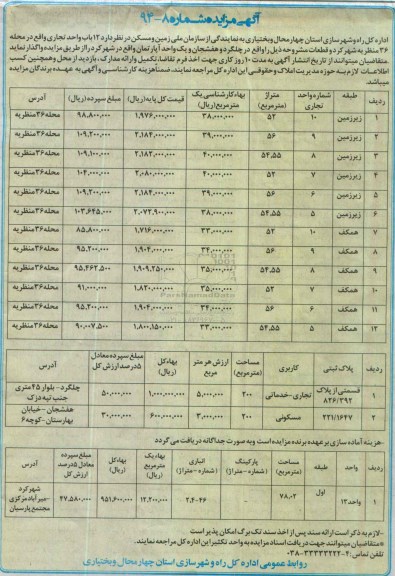 آگهی مزایده شماره ۸-۹۴
اداره کل راه و شهرسازی استان چهارمحال وبختیاری به نمایندگی از سازمان ملی زمین ومسکن در نظر دارد ۱۲ باب واحد تجاری واقع در محله
۳۶ منظریه شهرکرد و قطعات مشروحه ذیل را واقع در چلگرد و هفشجان و یک واحد آپارتمان واقع در شهر کرد را از طریق مزایده واگذار نماید
متقاضیان میتوانند از تاریخ انتشار آگهی به مدت ۱۰ روز کاری جهت اخذ فرم تقاضا، تکمیل وارائه مدارک، بازدید از محل و همچنین کسب
اطلاعات لازم به حوزه مدیریت املاک وحقوقی این اداره کل مراجعه نمایند، ضمناً هزینه کارشناسی و آگهی به عهده برندگان مزایده
میباشد.
ردیف طبقه شماره واحد تجاری متراژ (مترمربع) بهاء کارشناسی یک مترمربع (ریال) قیمت کل پایه (ریال) مبلغ سپرده (ریال) آدرس
۱ زیرزمین ۱۰ ۵۲ ۳۸,۰۰۰,۰۰۰ ۱,۹۷۶,۰۰۰,۰۰۰ ۹۸,۸۰۰,۰۰۰ محله ۳۶ منظریه
۲ زیرزمین ۹ ۵۶ ۳۹,۰۰۰,۰۰۰ ۲,۱۸۴,۰۰۰,۰۰۰ ۱۰۹,۲۰۰,۰۰۰ محله ۳۶ منظریه
۳ زیرزمین ۸ ۵۴,۵۵ ۴۰,۰۰۰,۰۰۰ ۲,۱۸۲,۰۰۰,۰۰۰ ۱۰۹,۱۰۰,۰۰۰ محله ۳۶ منظریه
۴ زیرزمین ۷ ۵۲ ۴۰,۰۰۰,۰۰۰ ۲,۰۸۰,۰۰۰,۰۰۰ ۱۰۴,۰۰۰,۰۰۰ محله ۳۶ منظریه
۵ زیرزمین ۶ ۵۶ ۳۹,۰۰۰,۰۰۰ ۲,۱۸۴,۰۰۰,۰۰۰ ۱۰۹,۲۰۰,۰۰۰ محله ۳۶ منظریه
۶ زیرزمین ۵ ۵۴,۵۵ ۳۸,۰۰۰,۰۰۰ ۲,۰۷۲,۹۰۰,۰۰۰ ۱۰۳,۶۴۵,۰۰۰ محله ۳۶ منظریه
۷ همکف ۱۰ ۵۲ ۳۳,۰۰۰,۰۰۰ ۱,۷۱۶,۰۰۰,۰۰۰ ۸۵,۸۰۰,۰۰۰ محله ۳۶ منظریه
۸ همکف ۹ ۵۶ ۳۴,۰۰۰,۰۰۰ ۱,۹۰۴,۰۰۰,۰۰۰ ۹۵,۲۰۰,۰۰۰ محله ۳۶ منظریه
۹ همکف ۸ ۵۴,۵۵ ۳۵,۰۰۰,۰۰۰ ۱,۹۰۹,۲۵۰,۰۰۰ ۹۵,۴۶۲,۵۰۰ محله ۳۶ منظریه
۱۰ همکف ۷ ۵۲ ۳۵,۰۰۰,۰۰۰ ۱,۸۲۰,۰۰۰,۰۰۰ ۹۱,۰۰۰,۰۰۰ محله ۳۶ منظریه
۱۱ همکف ۶ ۵۶ ۳۴,۰۰۰,۰۰۰ ۱,۹۰۴,۰۰۰,۰۰۰ ۹۵,۲۰۰,۰۰۰ محله ۳۶ منظریه
۱۲ همکف ۵ ۵۴,۵۵ ۳۳,۰۰۰,۰۰۰ ۱,۸۰۰,۱۵۰,۰۰۰ ۹۰,۰۰۷,۵۰۰ محله ۳۶ منظریه
ردیف پلاک ثبتی کاربری مساحت (مترمربع) ارزش هر متر مربع بهاء کل (ریال) مبلغ سپرده معادل ۵ درصد ارزش کل آدرس
۱ قسمتی از پلاک ۸۲۶/۲۹۲ تجاری-خدماتی ۲۰۰ ۵,۰۰۰,۰۰۰ ۱,۰۰۰,۰۰۰,۰۰۰ ۵۰,۰۰۰,۰۰۰ چلگرد- بلوار ۴۵ متری جنب تپه دزک
۲ ۲۲۱/۱۶۴۷ مسکونی ۲۰۰ ۳,۰۰۰,۰۰۰ ۶۰۰,۰۰۰,۰۰۰ ۳۰,۰۰۰,۰۰۰ هفشجان -خیابان بهارستان-کوچه ۶
-هزینه آماده سازی بر عهده برنده مزایده است و به صورت جداگانه دریافت می گردد
ردیف واحد طبقه مساحت (مترمربع) پارکینگ (شماره -متراژ) انباری (شماره - متراژ) بهاء یک مترمربع (ریال) بهاء کل (ریال) مبلغ سپرده معادل ۵ درصد ارزش کل آدرس
۱ واحد ۱۲ اول ۷۸,۰۲ - ۲,۴-۴۶ ۱۲,۲۰۰,۰۰۰ ۹۵۱,۶۰۰,۰۰۰ ۴۷,۵۸۰,۰۰۰ شهرکرد -میرآباد مرکزی مجتمع پارسیان
-لازم به ذکر است ارائه سند پس از اخذ سند تک برگ امکان پذیر است
*متقاضیان میتوانند جهت دریافت اسناد مزایده به واحد تکثیر این اداره کل مراجعه نمایند.
تلفن تماس: ۴-۳۳۳۳۳۲۲۲-۰۳۸
روابط عمومی اداره کل راه و شهرسازی استان چهارمحال وبختیاری